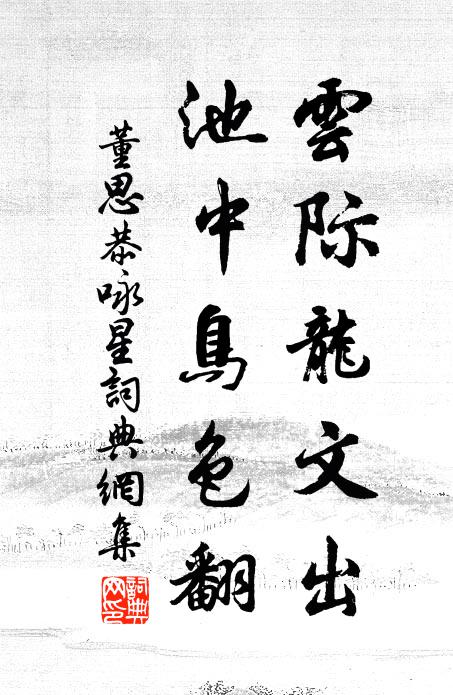 雲际龍文出
池中鳥色翻
董思恭咏星詞典網集
詞典网印